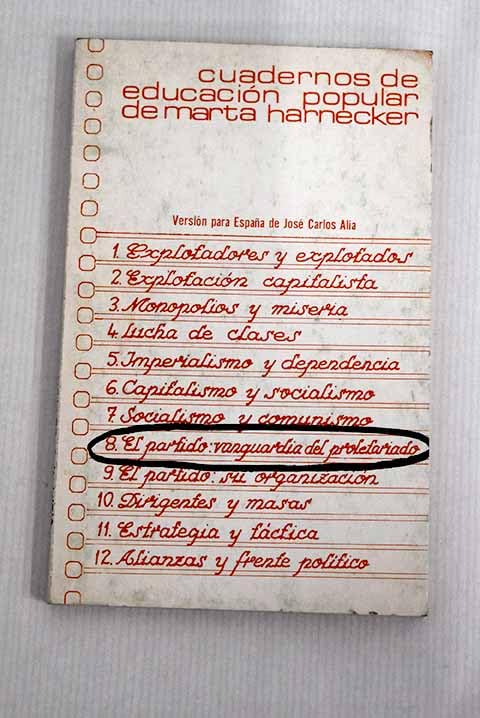 cuadernos de
educación popular
de marta harnecker
Versión para España de José Carlos Alía
1. Explotadores y explotados
2. Explotación capitalista
3. Monopolios y miseria
4. Lucha de clases
5. Imperialismo y dependencia
6. Capitalismo y socialismo
7. Socialismo y comunismo
8. El partido: vanguardia del proletariado
9. El partido: su organización
10. Dirigentes y masas
11. Estrategia y táctica
12. Alianzas y frente político